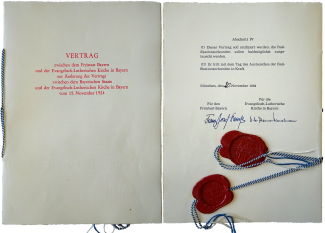 VERTRAG
zwischen dem Freistaat Bayern
und der Evangelisch-Lutherischen Kirche in Bayern
zur Änderung des Vertrags
zwischen dem Bayerischen Staate
und der Evangelisch-Lutherischen Kirche in Bayern
vom 15. November 1924
Abschnitt IV
(1) Dieser Vertrag soll ratifiziert werden; die Rati-
fikationsurkunden sollen baldmöglichst ausge-
tauscht werden.
(2) Er tritt mit dem Tag des Austausches der Rati-
fikationsurkunden in Kraft.
München, den November
Für den
Freistaat Bayern
Für die
Evangelisch-Lutherische
Kirche in Bayern
Franz Josef Strauß